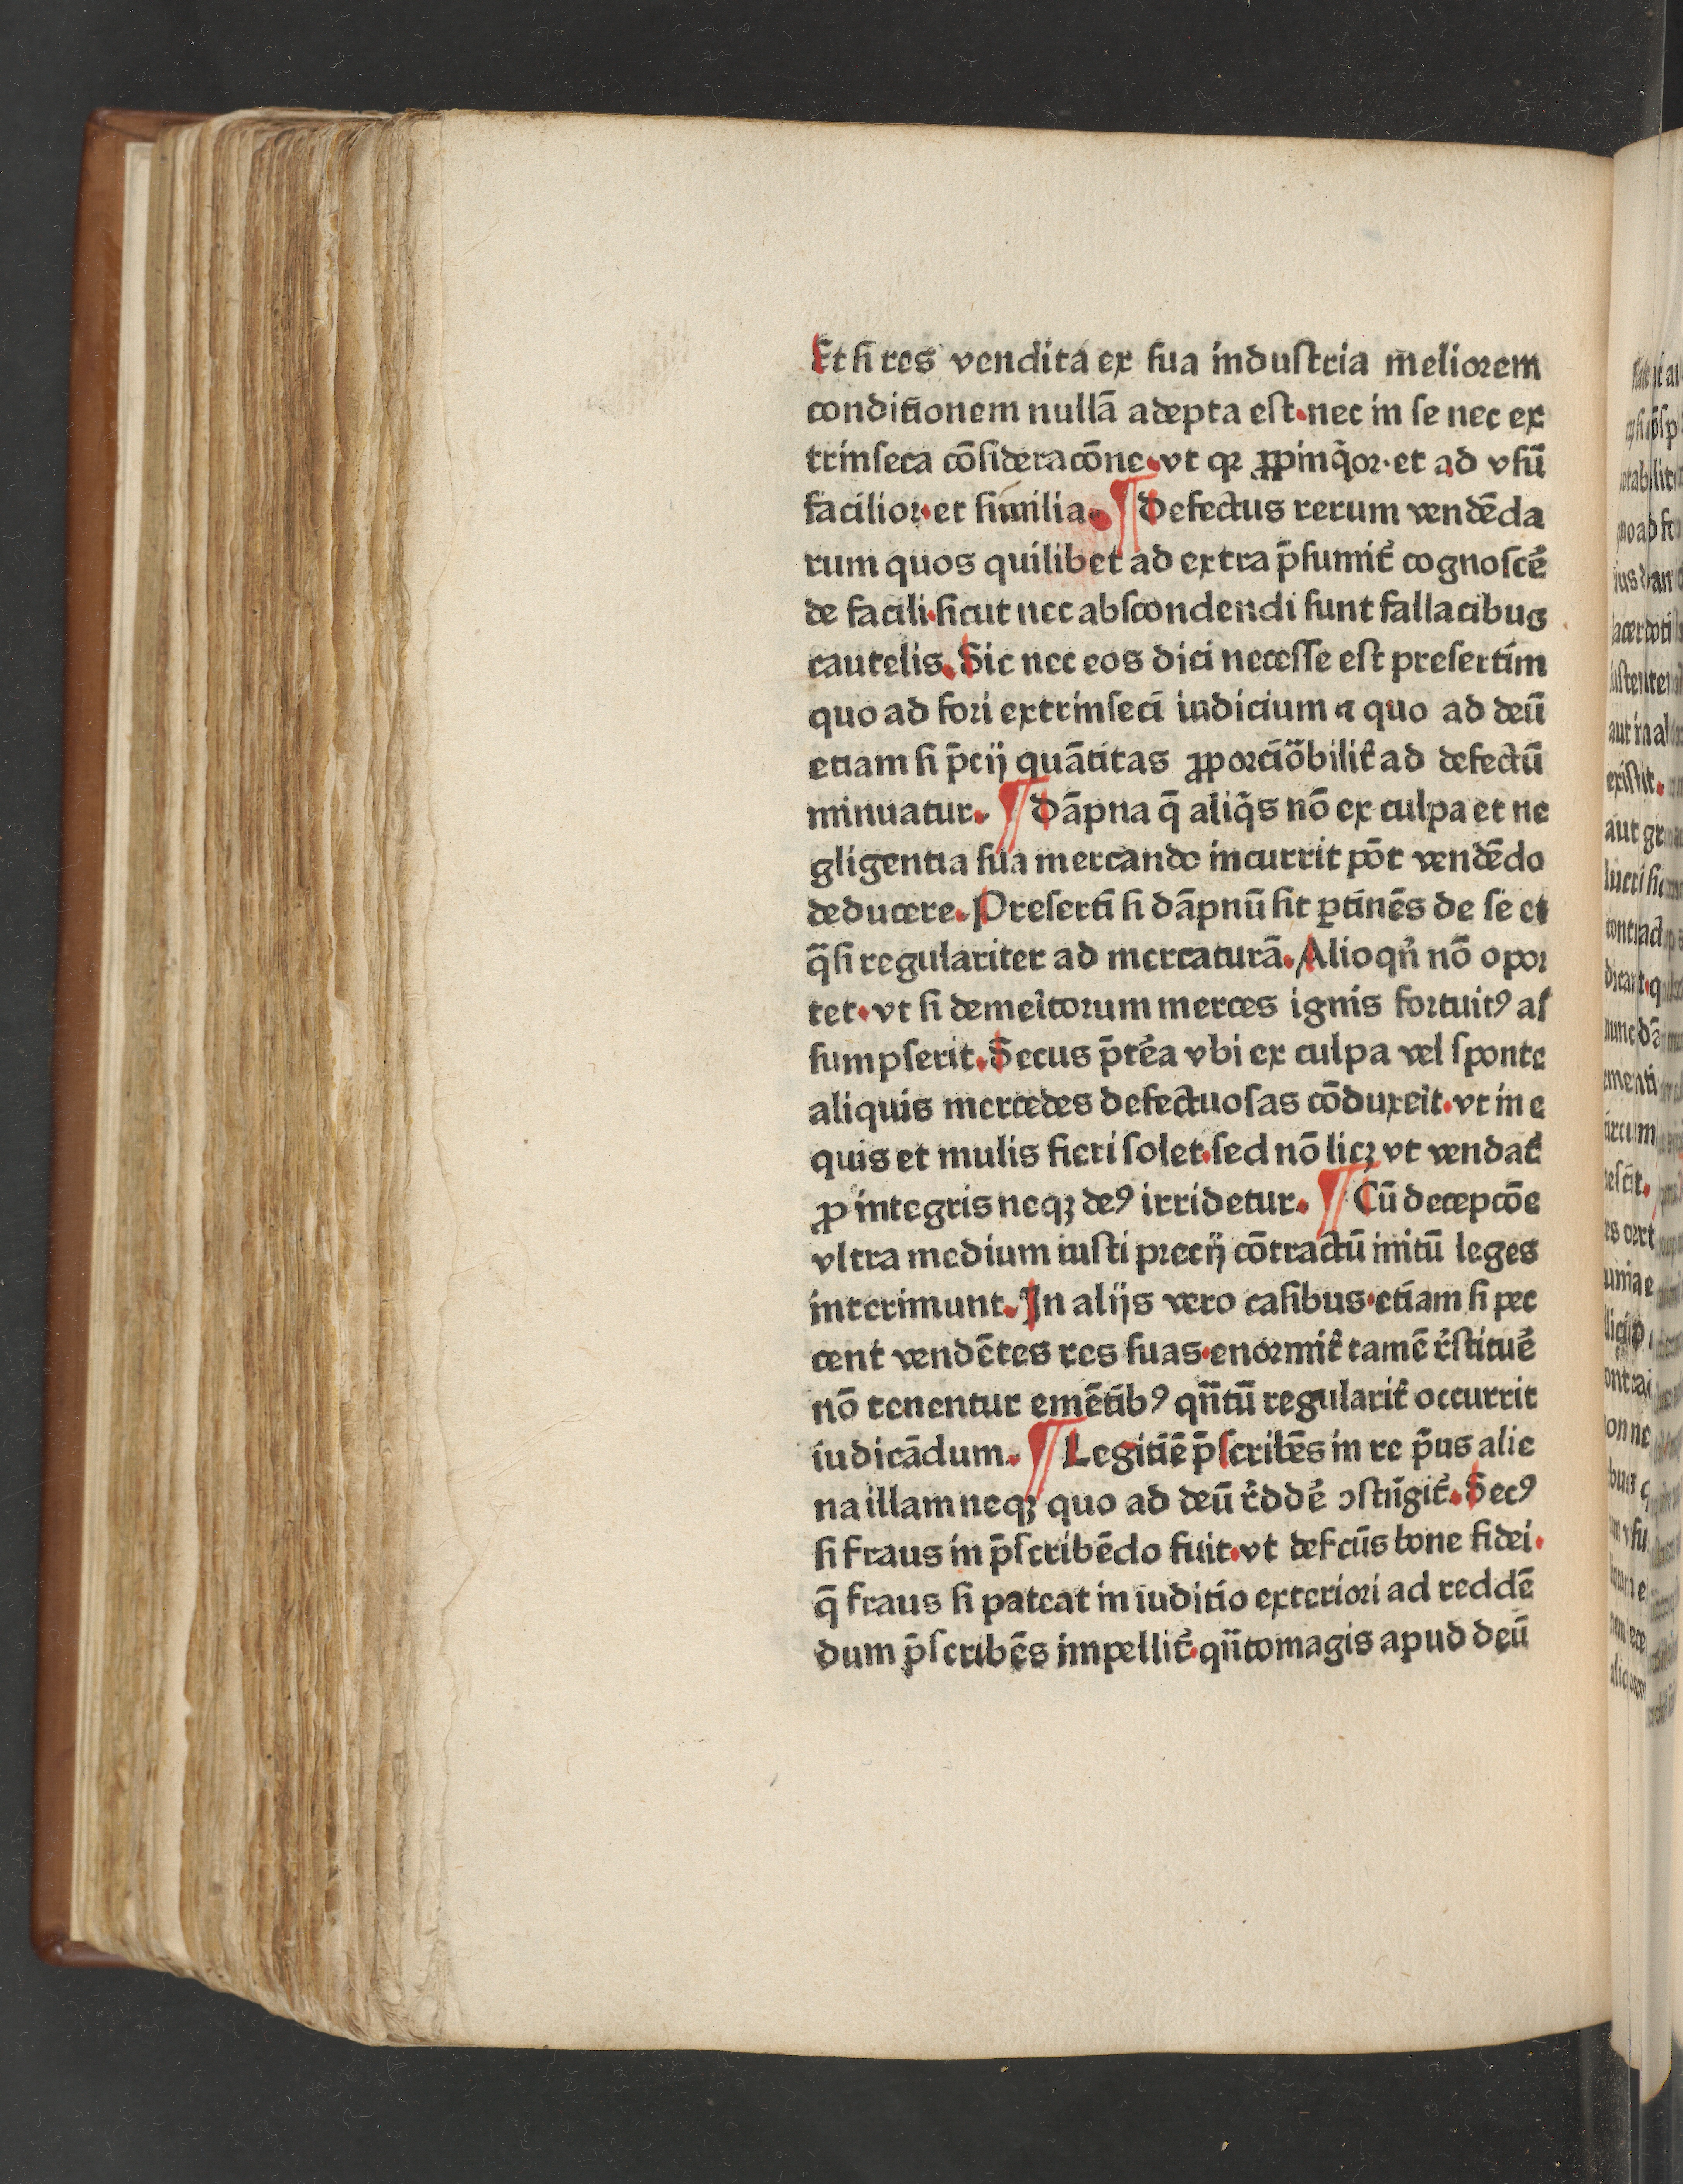 Et si res vendita ex sua industria meliorem
conditionem nullā adepta est. nec in se nec ex
trinseca cōsideracōne. vt qꝛ ꝓpinq̄or. et ad vsū
facilior. et similia. ¶ Defectus rerum vendēda
rum quos quilibet ad extra p̄sumit᷑ cognoscē᷑
de facili. sicut nec abscondendi sunt fallacibus
cautelis. Sic nec eos dici necesse est presertim
quo ad fori extrinseci iudicium ⁊ quo ad deū
etiam si p̄cij quātitas ꝓporciōbilit᷑ ad defectū
minuatur. ¶ Dāpna q̄ aliq̄s nō ex culpa et ne
gligentia sua mercando incurrit pōt vendēdo
deducere. Presertī si dāpnū sit ꝑtinēs de se et
q̄si regulariter ad mercaturā. Alioqn̄ nō opor
tet. vt si demeītorum merces ignis fortuitꝰ as
sumpserit. Secus p̄tēa vbi ex culpa vel sponte
aliquis mercedes defectuosas cōduxeīt. vt in e
quis et mulis fieri solet. sed nō licꝫ vt vendat᷑
ꝓ integris neqꝫ deꝰ irridetur. ¶ Cū decepcōe
vltra medium iusti precij cōtractū initū leges
interimunt. In alijs vero casibus. etiam si pec
cent vendētes res suas. enormit᷑ tamē r᷑stituē᷑
nō tenentur emētibꝰ qn̄tū regularit᷑ occurrit
iudicādum. ¶ Legitīe p̄scribēs in re p̄us alie
na illam neqꝫ quo ad deū r᷑ddē᷑ ꝯstrīgit᷑. Secꝰ
si fraus in p̄scribēdo fuit. vt defcūs bone fidei.
q̄ fraus si pateat in iuditio exteriori ad reddē
dum p̄scribēs impellit᷑. qn̄tomagis apud deū